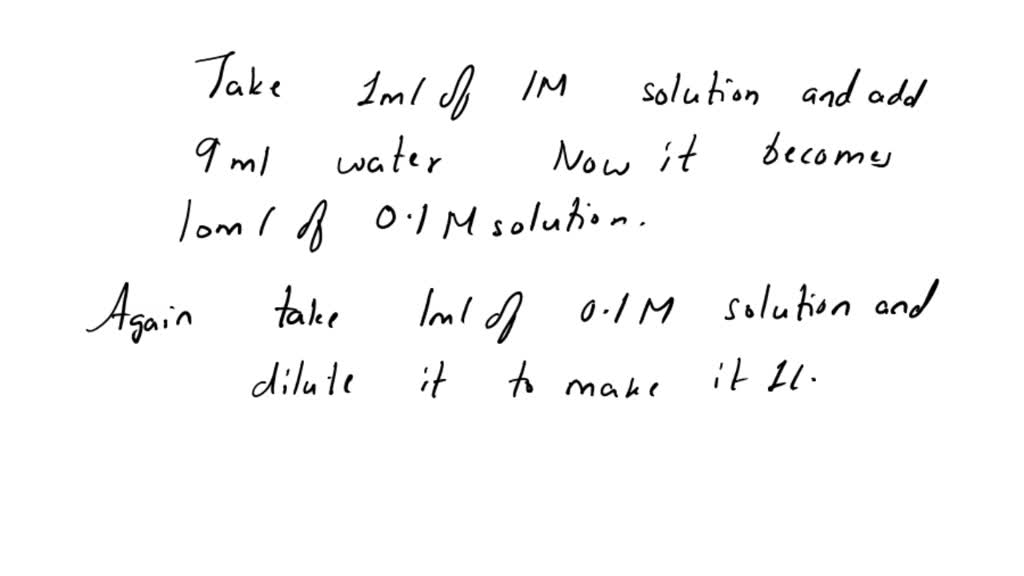 Take 1ml of 1M solution and add
9 ml water Now it becomes
10ml of 0.1 M solution.
Again take 1ml of 0.1M solution and
dilute it to make it 1l.